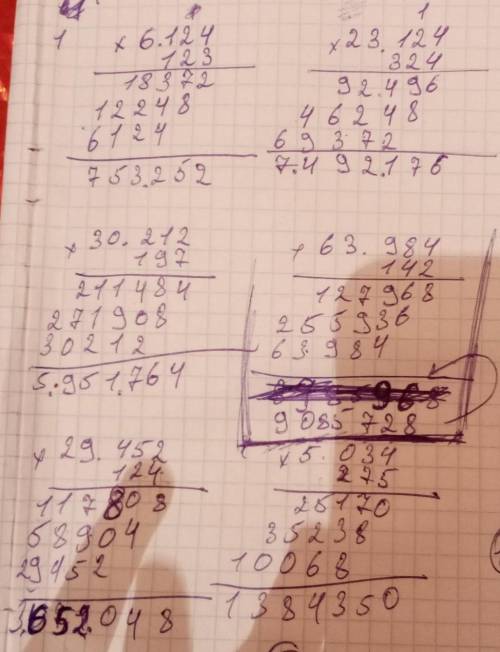 1
× 6.124
123
18372
12248
6124
753.252
1
× 23.124
324
92.496
46248
69372
7.492.176
× 30.212
197
211484
271908
30212
5.951.764
× 63.984
142
127968
255936
63984
9085728
× 29.452
124
117808
58904
29452
3.652.048
× 5.034
275
25170
35238
10068
1384350